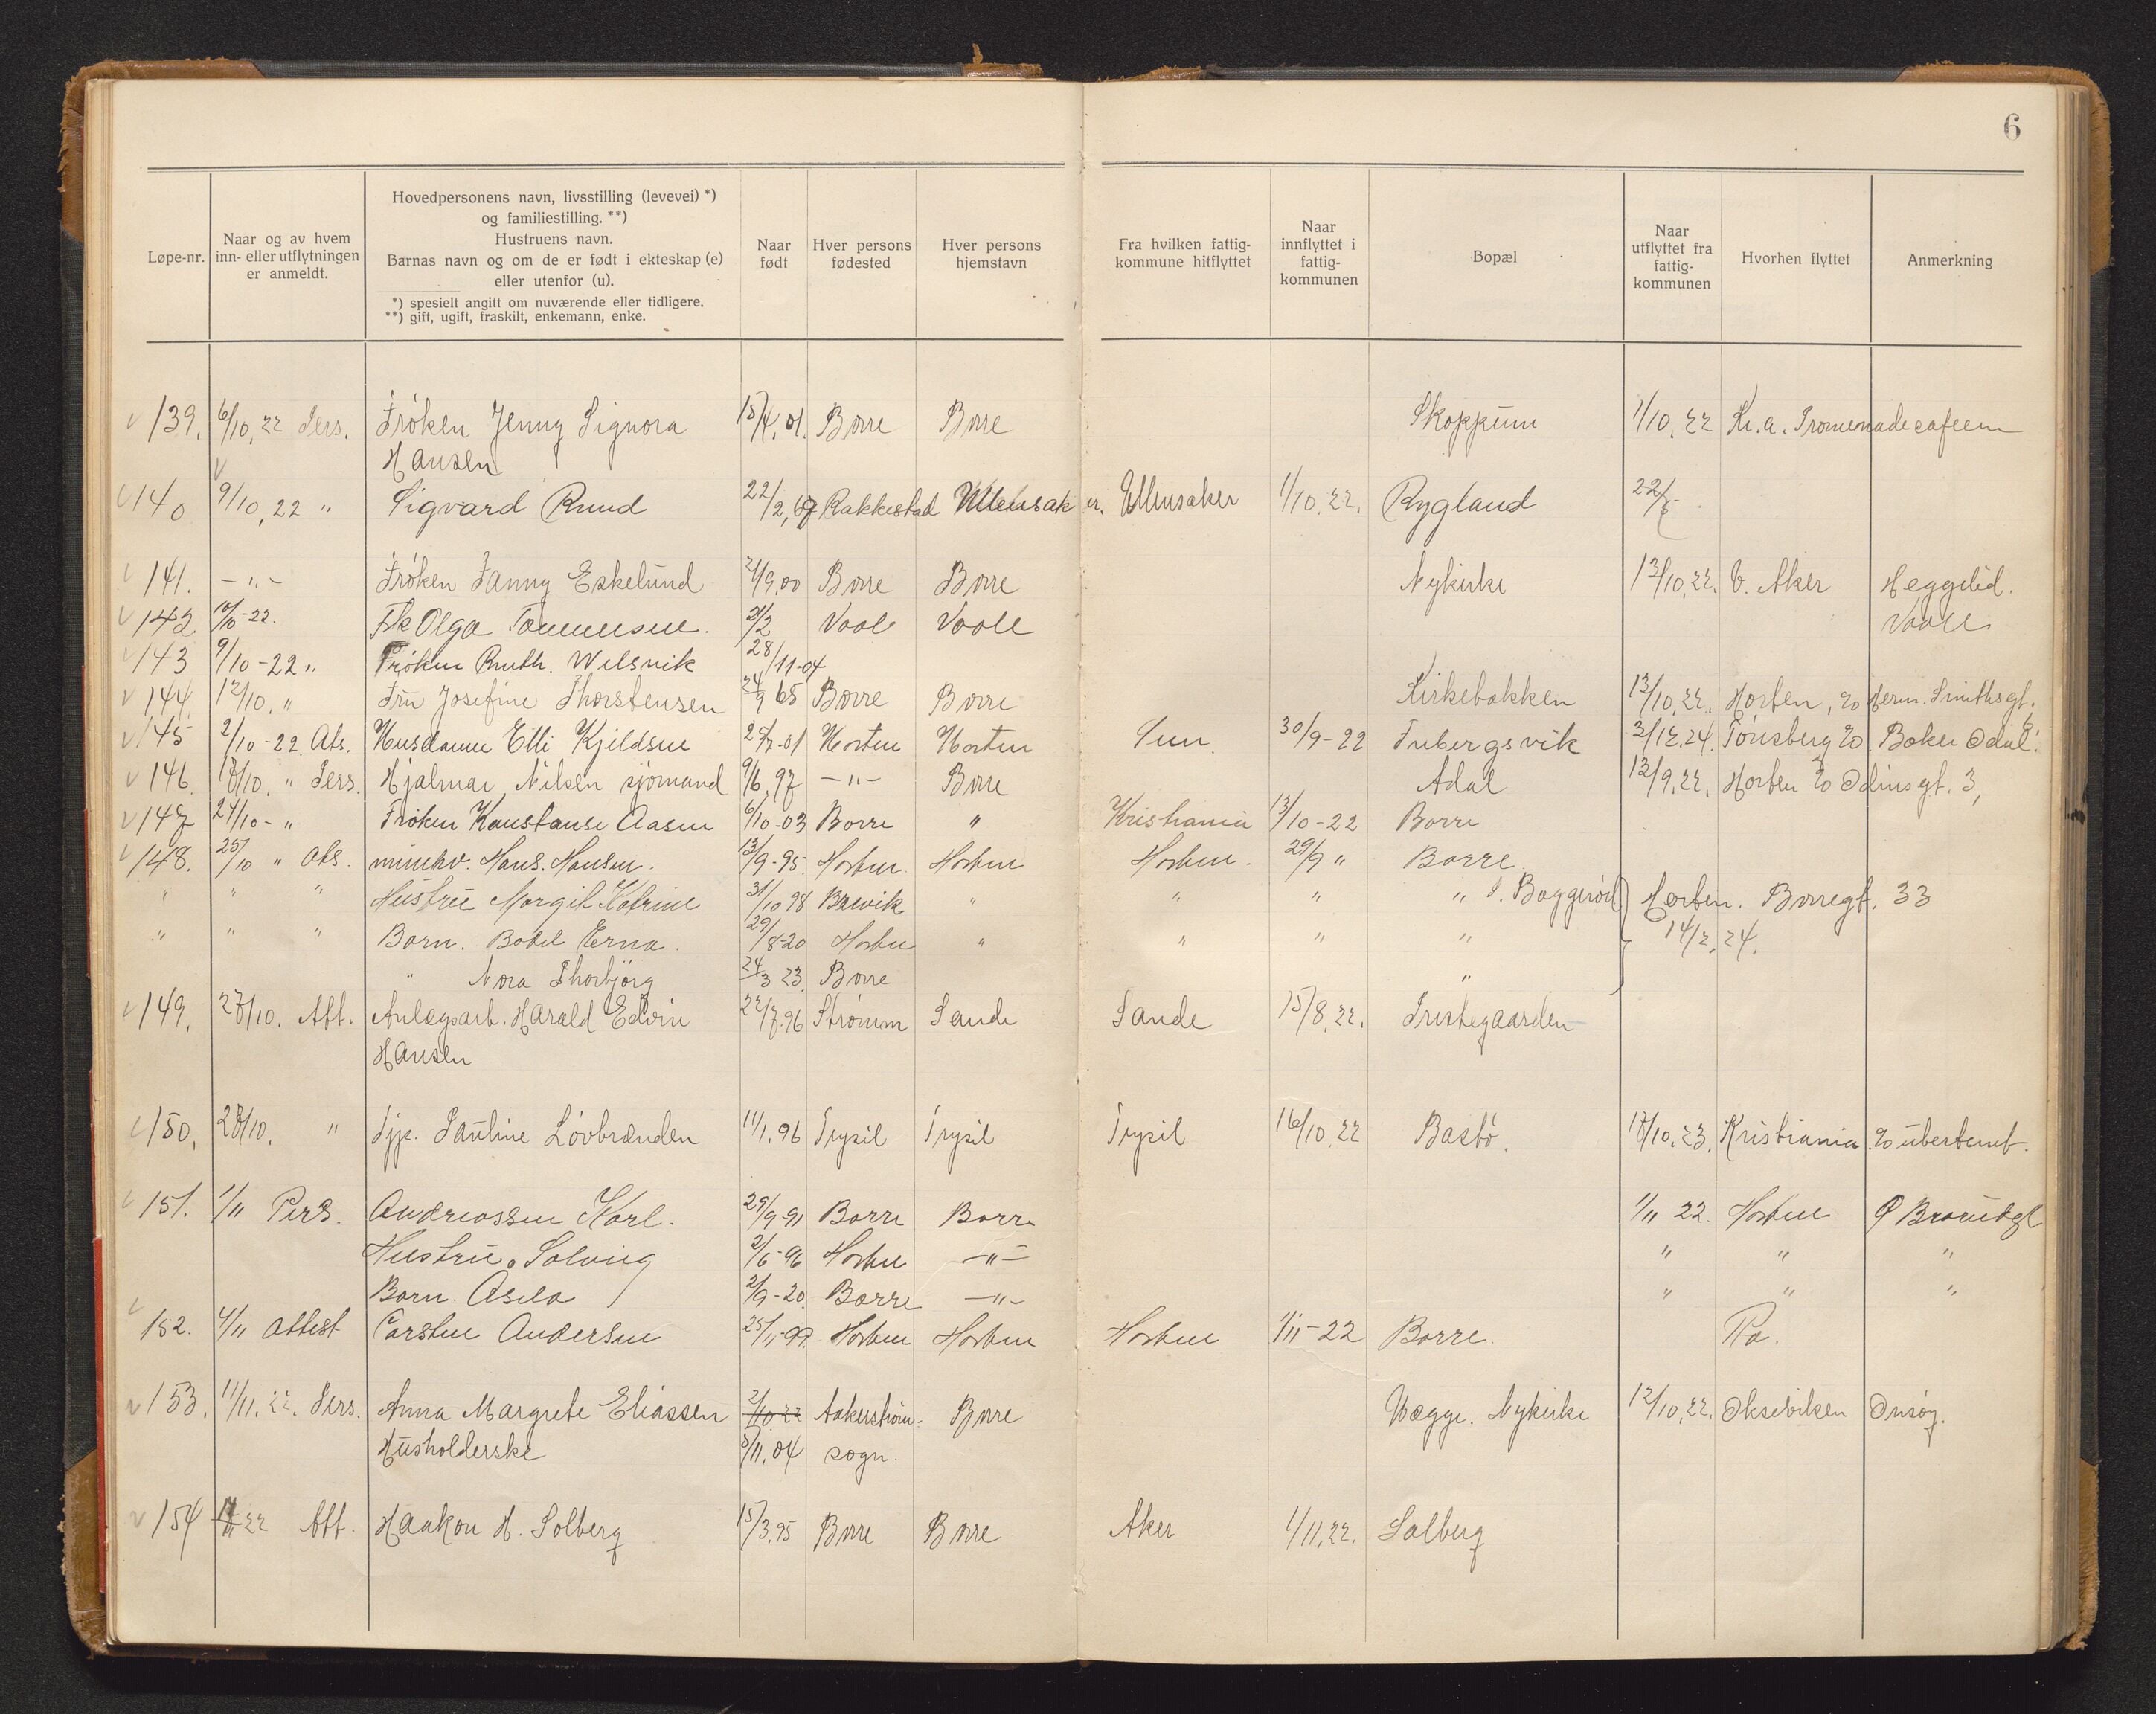 6
Løpe-nr.
Naar og av hvem
inn- eller utflytningen
er anmeldt.
Hovedpersonens navn, livsstilling (levevei) *)
og familiestilling. **)
Hustruens navn.
Barnas navn og om de er født i ekteskap (e)
eller utenfor (u).
*) spesielt angitt om nuværende eller tidligere.
**) gift, ugift, fraskilt, enkemann, enke.
Naar
født
Hver persons
fødested
Hver persons
hjemstavn
Fra hvilken fattig-
kommune hitflyttet
Naar
innflyttet i
fattig-
kommunen
Bopæl
Naar
utflyttet fra
fattig-
kommunen
Hvorhen flyttet
Anmerkning
139. 6/10.22 Pers. Frøken Jenny Signora 15/4.01. Borre Borre Skoppum 1/10.22 Kr.a. Promenadecafeen
Hansen
140 9/10,22 " Sigvard Ruud 22/2, Rakkestad Ullensaker. Ullensaker 1/10.22. Rygland 22/
141. -"- Frøken Fanny Eskelund 2/9.00 Borre Borre Nykirke 13/10.22. V. Aker Heggelid.
142. 10/10-22. Frk Olga Tommesen. 2/2 Vaale Vaale Vaale
143 9/10-22 " Frøken Ruth. Wilsvik 28/11-04
144 12/10. " Fru Josefine Thorstensen 24/9 65 Borre Borre Kirkebakken 13/10.22. Horten, % Herm. Smithsgt. 6
145 2/10-22. Ats. Husdamme Elli Kjeldsen 28/7-01 Horten Horten Sem. 30/9-22 Fubergsvik 3/12.24. Tønsberg % Baker Odal.
146. 18/10. " Pers. Hjalmar Nilsen sjømand 9/6.97 -"- Borre Adal 12/9.22. Horten % Odinsgt. 3,
147 24/10- " Frøken Konstanse Aasen 6/10-03 Borre " Kristiania 13/10-22 Borre
148. 25/10 " Ats. minehv. Hans. Hansen. 13/9-95. Horten Horten Horten. 29/9 " Borre
" " " Hustru Margit Katrine 31/10 98 Brevik " " " " S. Baggerød Horten. Borregt. 33
" " " Barn. Bodil Erna. 29/8-20 Horten " " " " 14/12.24.
" Nora Thorbjørg 24/3 23. Borre "
149. 27/10. Att. Anlægsarb. Harald Edvin 22/7.96 Strømm Sande Sande 15/8.22. Prestegaarden
Hansen
150. 28/10. " Tjp. Pauline Løvbrænden 11/1.96 Trysil Trysil Trysil 16/10.22 Bastø. 18/10.23. Kristiania % ubestemt.
151. 1/11 Pers. Andreassen Karl. 29/9-91 Borre Borre 1/11 22. Horten Ø Braarudgt
Hustru. Solveig 2/6-96 Horten -"- " " "
Barn. Asela 2/9-20. Borre -"- " " "
152. 4/11 attest Carsten Andersen 25/11-99. Horten Horten Horten 1/11-22 Borre. Ra.
153. 11/11.22. Pers. Anna Margrete Eliassen 2/10.22 Aakerstrøm Borre Vægge. Nykirke 12/10.22. Oksevilsen Onsøy.
Husholderske 5/11.04 sogn.
154 22 Att. Haakon H. Solberg 15/3.95 Borre Borre Aker 1/11.22. Solberg